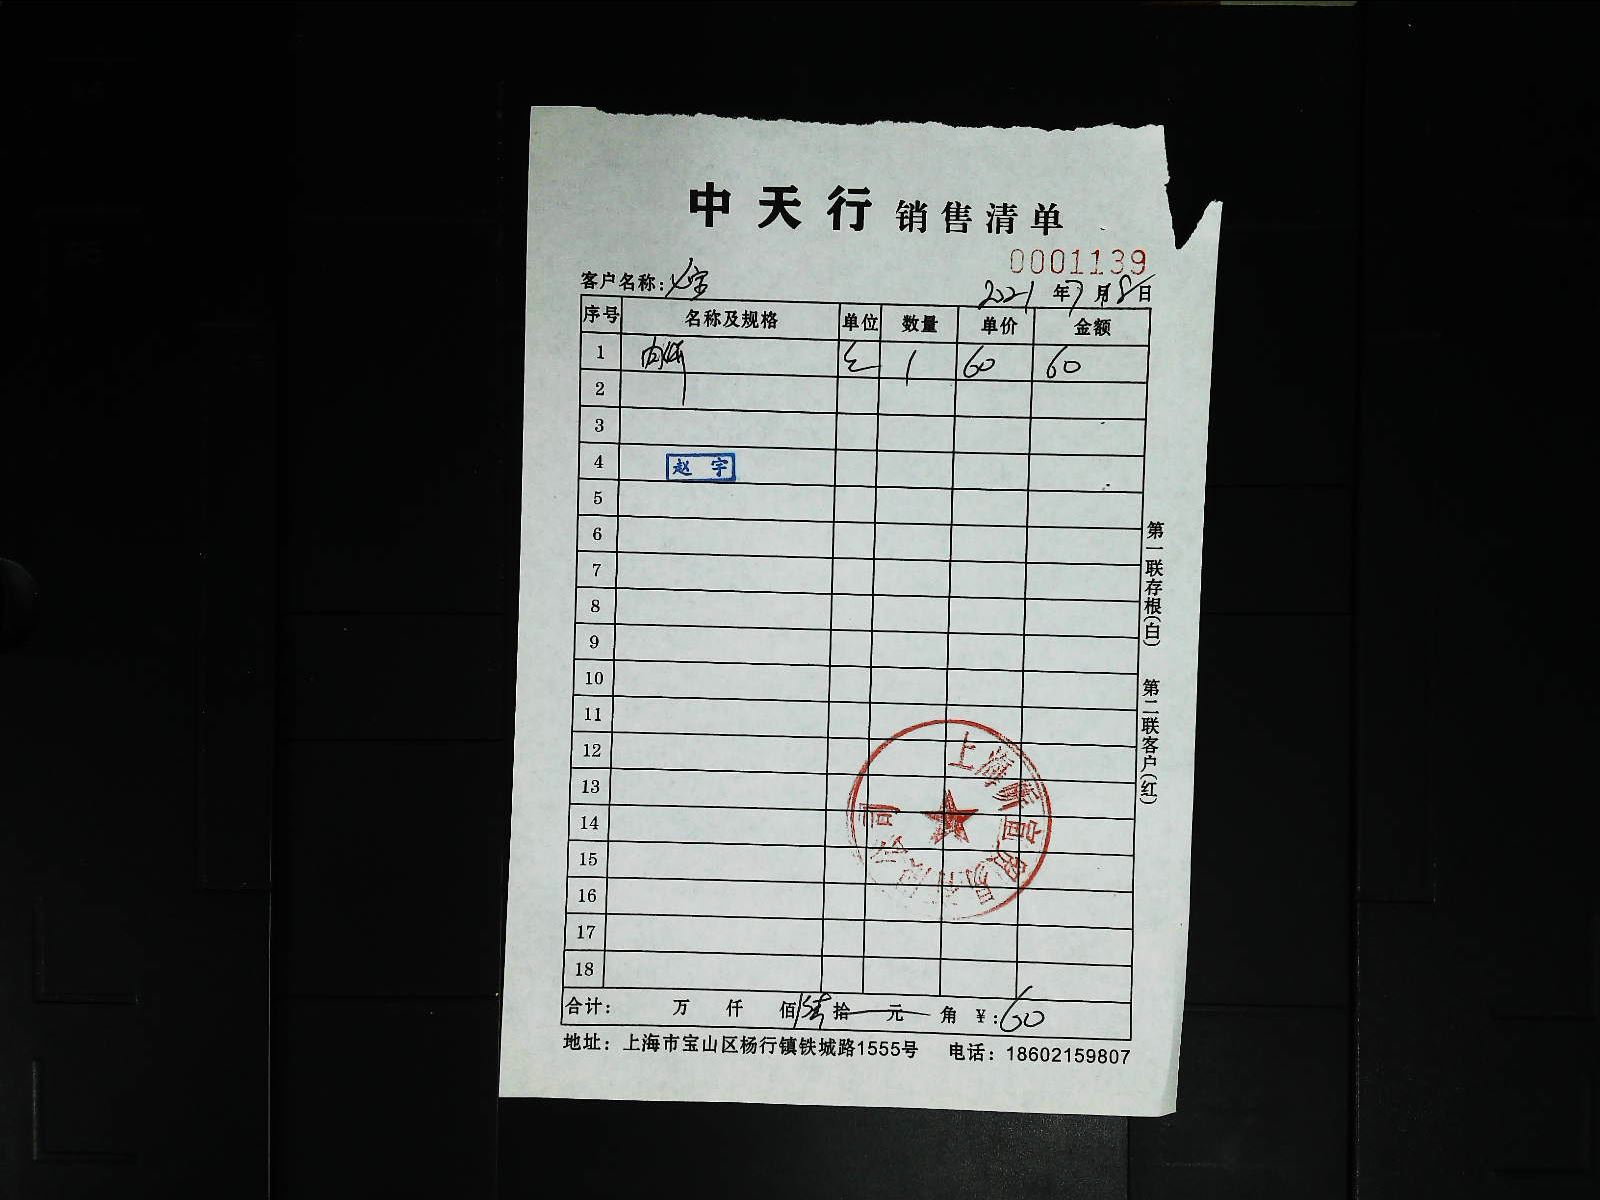 中天行 销售清单
0001139
客户名称:
2021年7月8日
序号 名称及规格 单位 数量 单价 金额
1 1 60 60
2
3
4 赵宇
5
6
7
8
9
10
11
12
13
14
15
16
17
18
上海 贸易有限公司
合计: 万 仟 佰 陆拾 元 角 ¥:60
地址:上海市宝山区杨行镇铁城路1555号 电话:18602159807
第一联存根(白) 第二联客户(红)